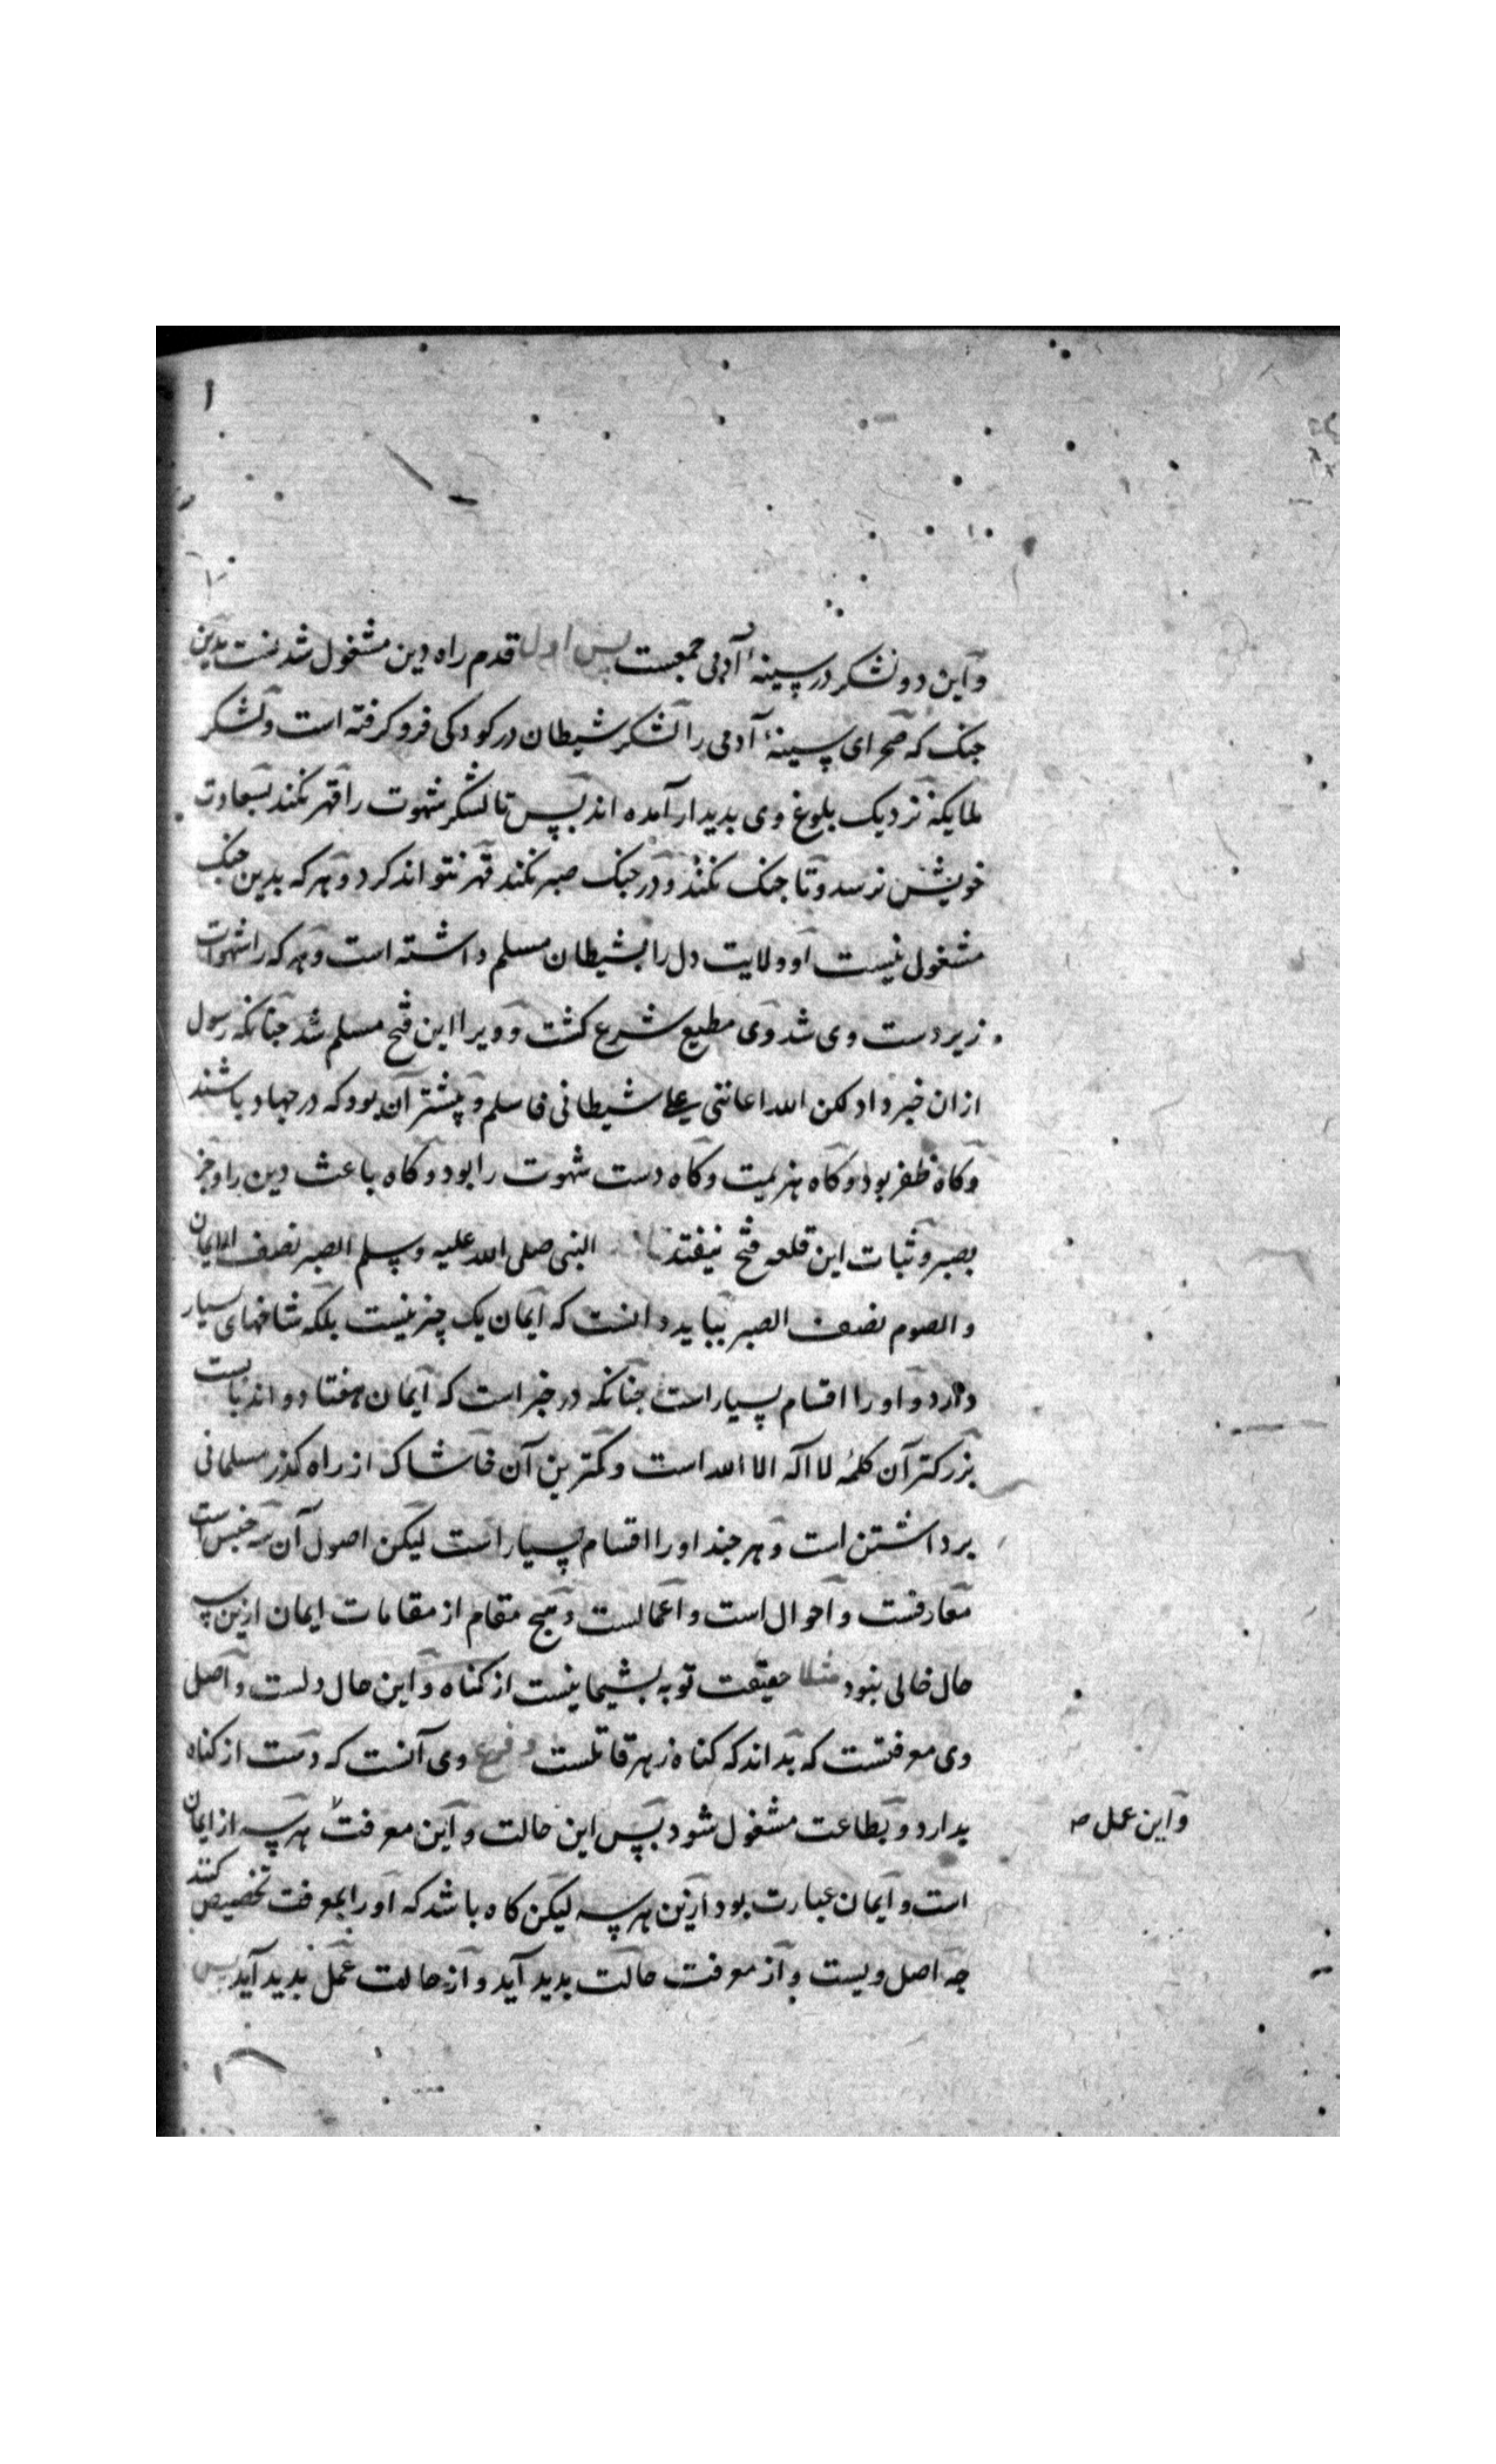 واین دو لشکر در سینهٔ آدمی جمعست پس اول قدم راه دین مشغول شدنست بدین
جنک که صحرای سینهٔ آدمی را لشکر شیطان در کودکی فرو کرفته است و لشکر
ملایکه نزدیک بلوغ وی بدیدار آمده اند پس تا لشکر شهوت را قهر نکند بسعادت
خویش نرسد و تا جنک نکند و در جنک صبر نکند قهر نتواند کرد و هر که بدین جنک
مشغول نیست او ولایت دل را بشیطان مسلم داشته است و هر که را شهوات
زیر دست وی شد وی مطیع شرع کشت و ویرا این فتح مسلم شد جنانکه رسول
ازان خبر داد لکن الله اعاننی علی شیطانی فاسلم و بیشتر آن بود که در جهاد باشند
و کاه ظفر بود و کاه هزیمت و کاه دست شهوت را بود و کاه باعث دین را و جز
بصبر و ثبات این قلعه فتح نیفتد النبی صلی الله علیه وسلم الصبر نصف الایمان
و الصوم نصف الصبر بباید دانست که ایمان یک چیز نیست بلکه شاخهای بسیار
دارد و او را اقسام بسیار است جنانکه در خبر است که ایمان هفتاد و اند بابست
بزرکتر آن کلمهٔ لا اله الا الله است و کمترین آن خاشاک از راه کذر مسلمانی
برداشتن است و هر جند او را اقسام بسیار است لیکن اصول آن سه جنس است
معارفست و احوال است و اعمالست و هیج مقام از مقامات ایمان ازین سه
حال خالی نبود مثلا حقیقت توبه بشیمانیست از کناه و این حال دلست و اصل
وی معرفتست که بداند که کناه زهر قاتلست و فرع وی آنست که دست از کناه
بدارد و بطاعت مشغول شود پس این حالت و این معرفت هر سه از ایمان
واین عمل صح
است و ایمان عبارت بود ازین هر سه لیکن کاه باشد که او را بمعرفت تخصیص کنند
جه اصل ویست و از معرفت حالت بدید آید و از حالت عمل بدید آید پس